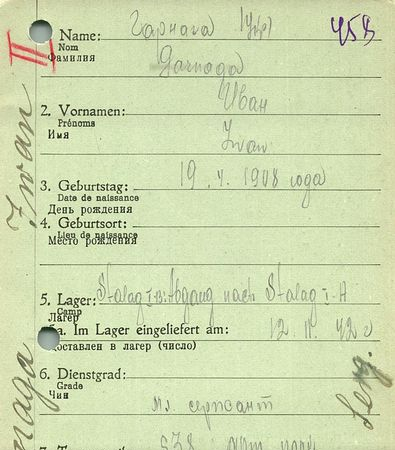 II
1. Name: Гарнага (Укр) 453
Nom
Фамилия Garnaga
2. Vornamen: Иван
Prénoms
Имя Iwan
3. Geburtstag: 19. 4. 1908 года
Date de naissance
День рождения
4. Geburtsort:
Lieu de naissance
Место рождения
5. Lager: Stalag I B: Abgang nach Stalag I-A
Camp
Лагер
5a. Im Lager eingeliefert am: 12. 42
доставлен в лагер (число)
6. Dienstgrad:
Grade
Чин мл. сержант
538
Iwan
Serg.